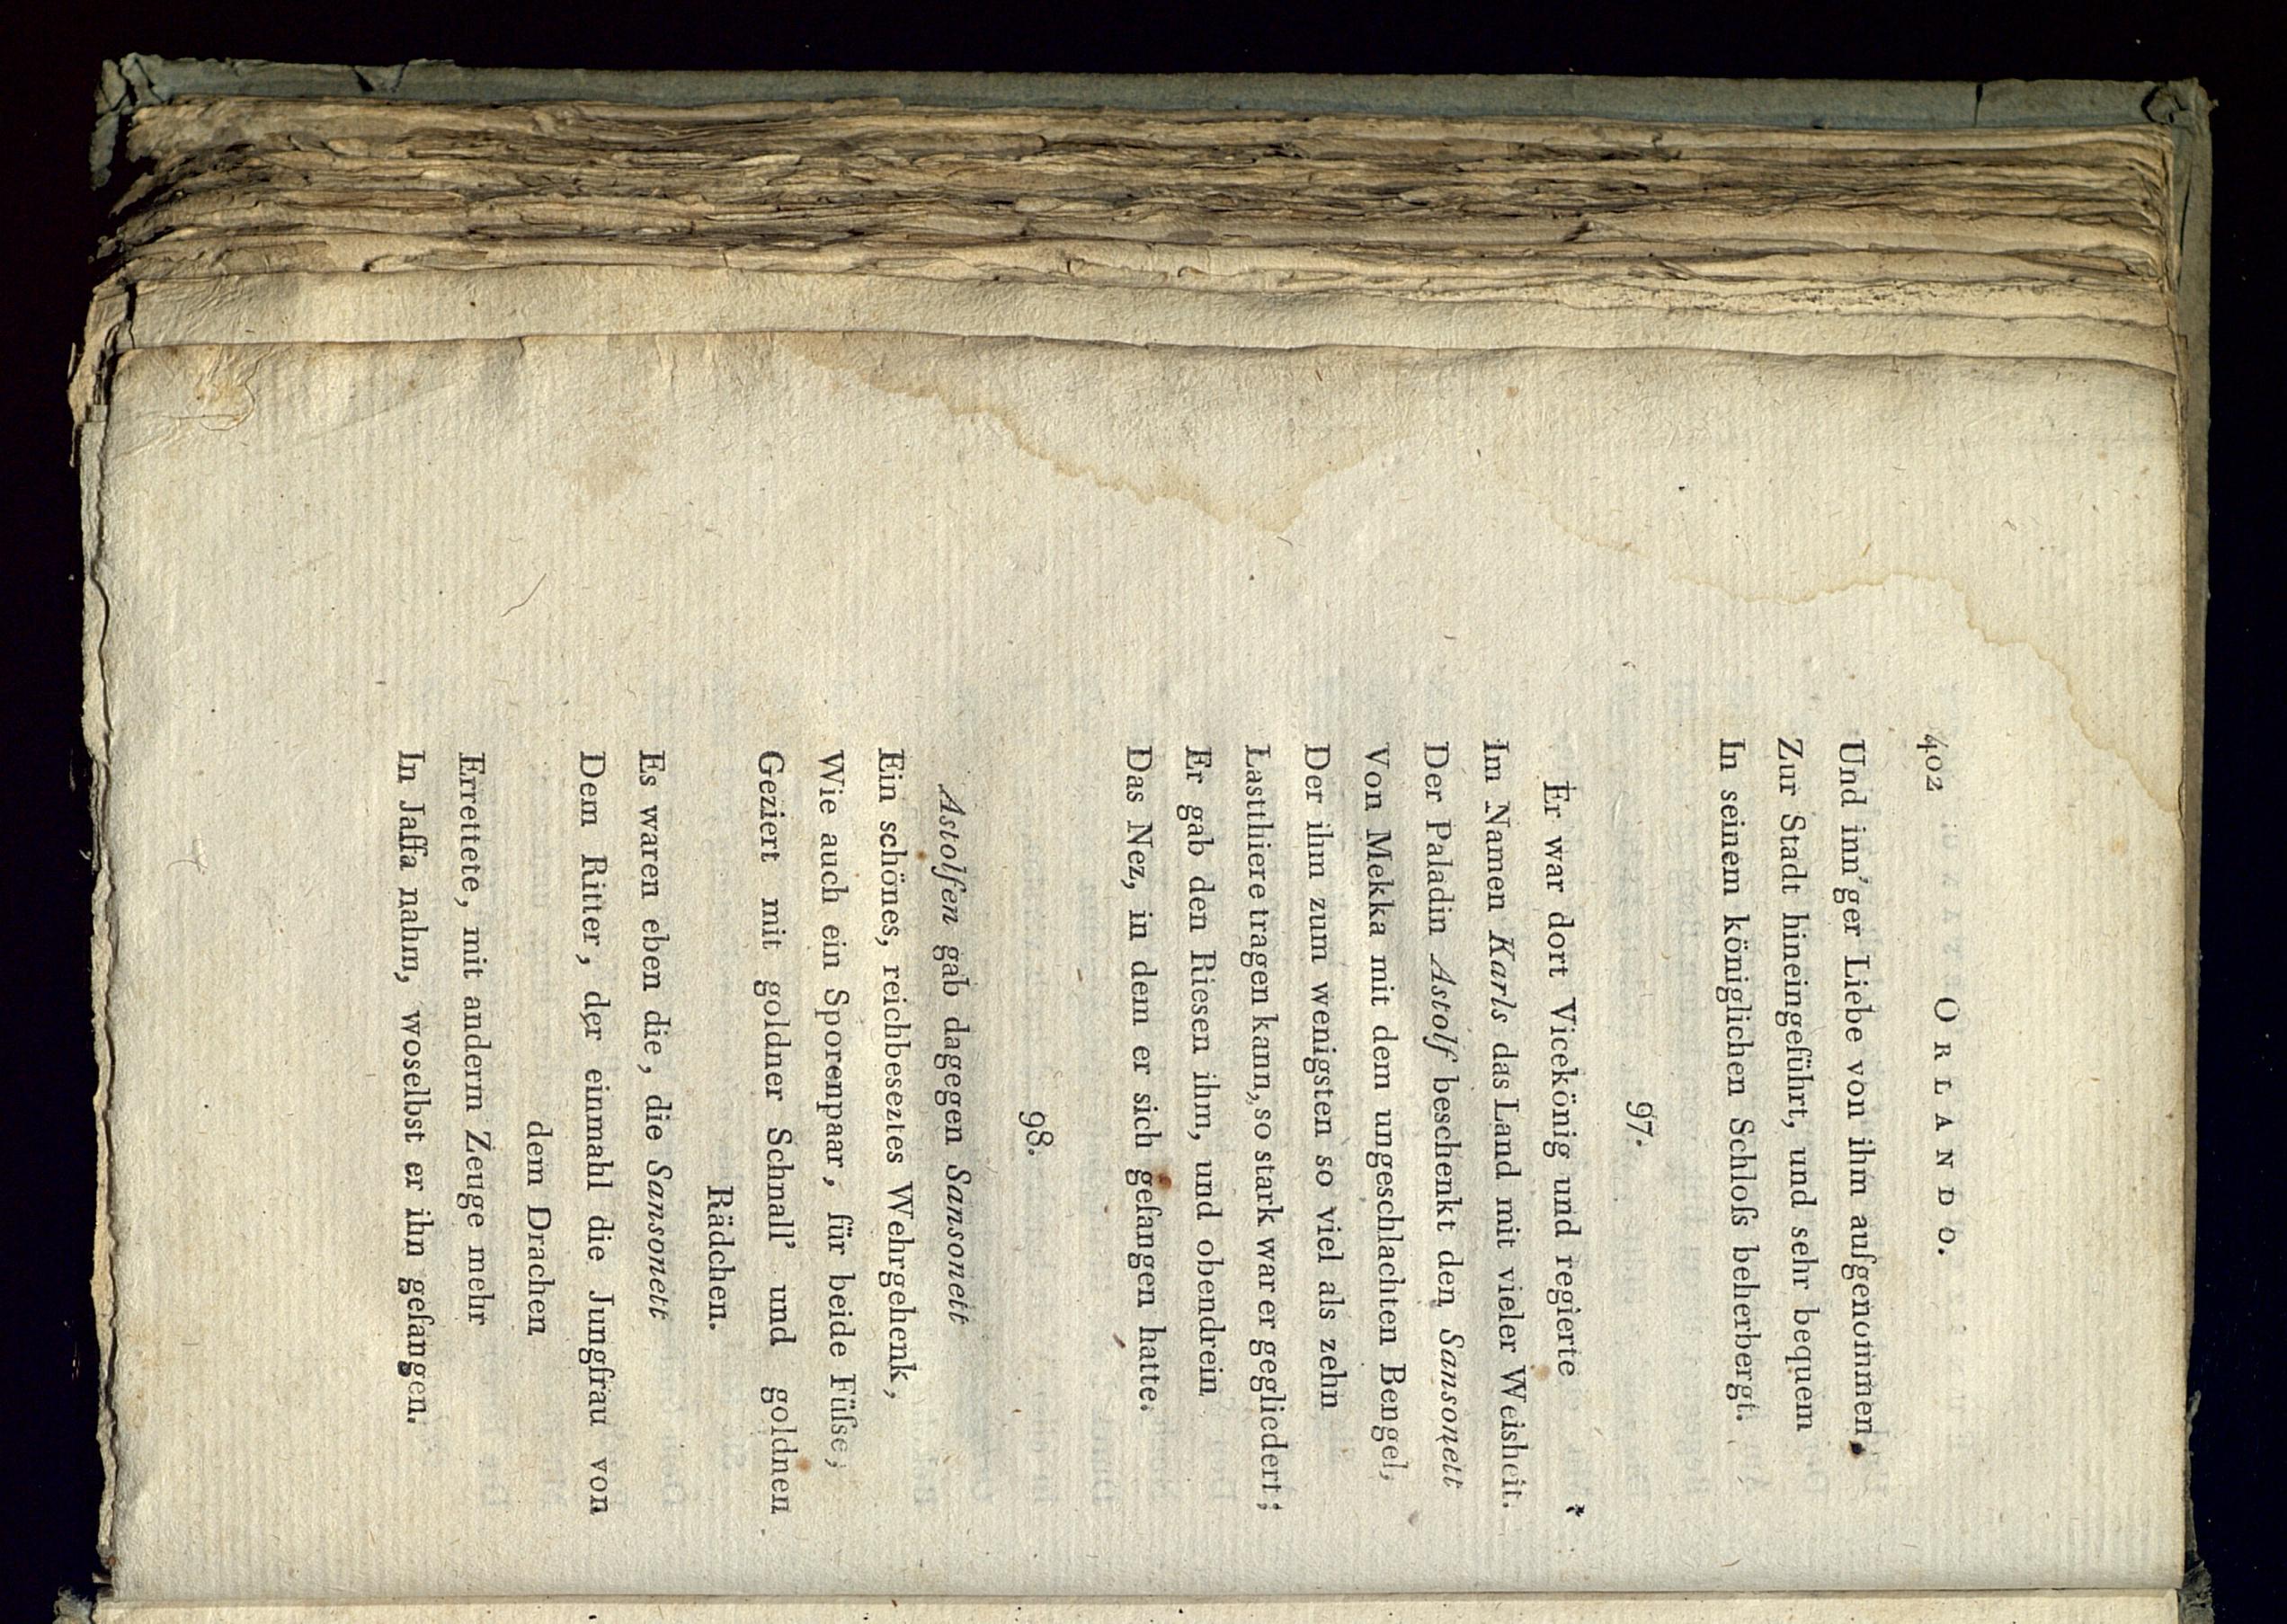 402 ORLANDO.
Und inn'ger Liebe von ihm aufgenommen,
Zur Stadt hineingeführt, und sehr bequem
In seinem königlichen Schloſs beherbergt.
97.
Er war dort Vicekönig und regierte
Im Namen Karls das Land mit vieler Weisheit.
Der Paladin Astolf beschenkt den Sansonett
Von Mekka mit dem ungeschlachten Bengel,
Der ihm zum wenigsten so viel als zehn
Lastthiere tragen kann, so stark war er gegliedert;
Er gab den Riesen ihm, und obendrein
Das Nez, in dem er sich gefangen hatte.
98.
Astolfen gab dagegen Sansonett
Ein schönes, reichbeseztes Wehrgehenk,
Wie auch ein Sporenpaar, für beide Füſse,
Geziert mit goldner Schnall' und goldnen
Rädchen.
Es waren eben die, die Sansonett
Dem Ritter, der einmahl die Jungfrau von
dem Drachen
Errettete, mit anderm Zeuge mehr
In Jaffa nahm, woselbst er ihn gefangen.